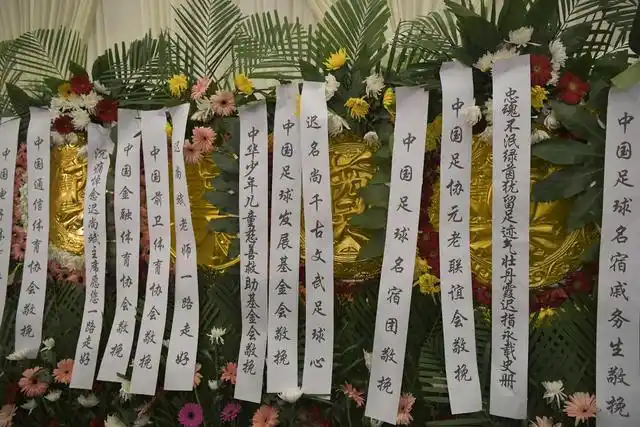 中国通信体育协会敬挽
沉痛悼念迟尚斌主席愿您一路走好
中国金融体育协会敬挽
中国前卫体育协会敬挽
迟尚斌老师一路走好
中华少年儿童慈善救助基金会敬挽
中国足球发展基金会敬挽
迟名尚千古文武足球心
中国足球名宿团敬挽
中国足协元老联谊会敬挽
忠魂不泯绿茵犹留足迹
壮丹霞迟指永载史册
中国足球名宿戚务生敬挽